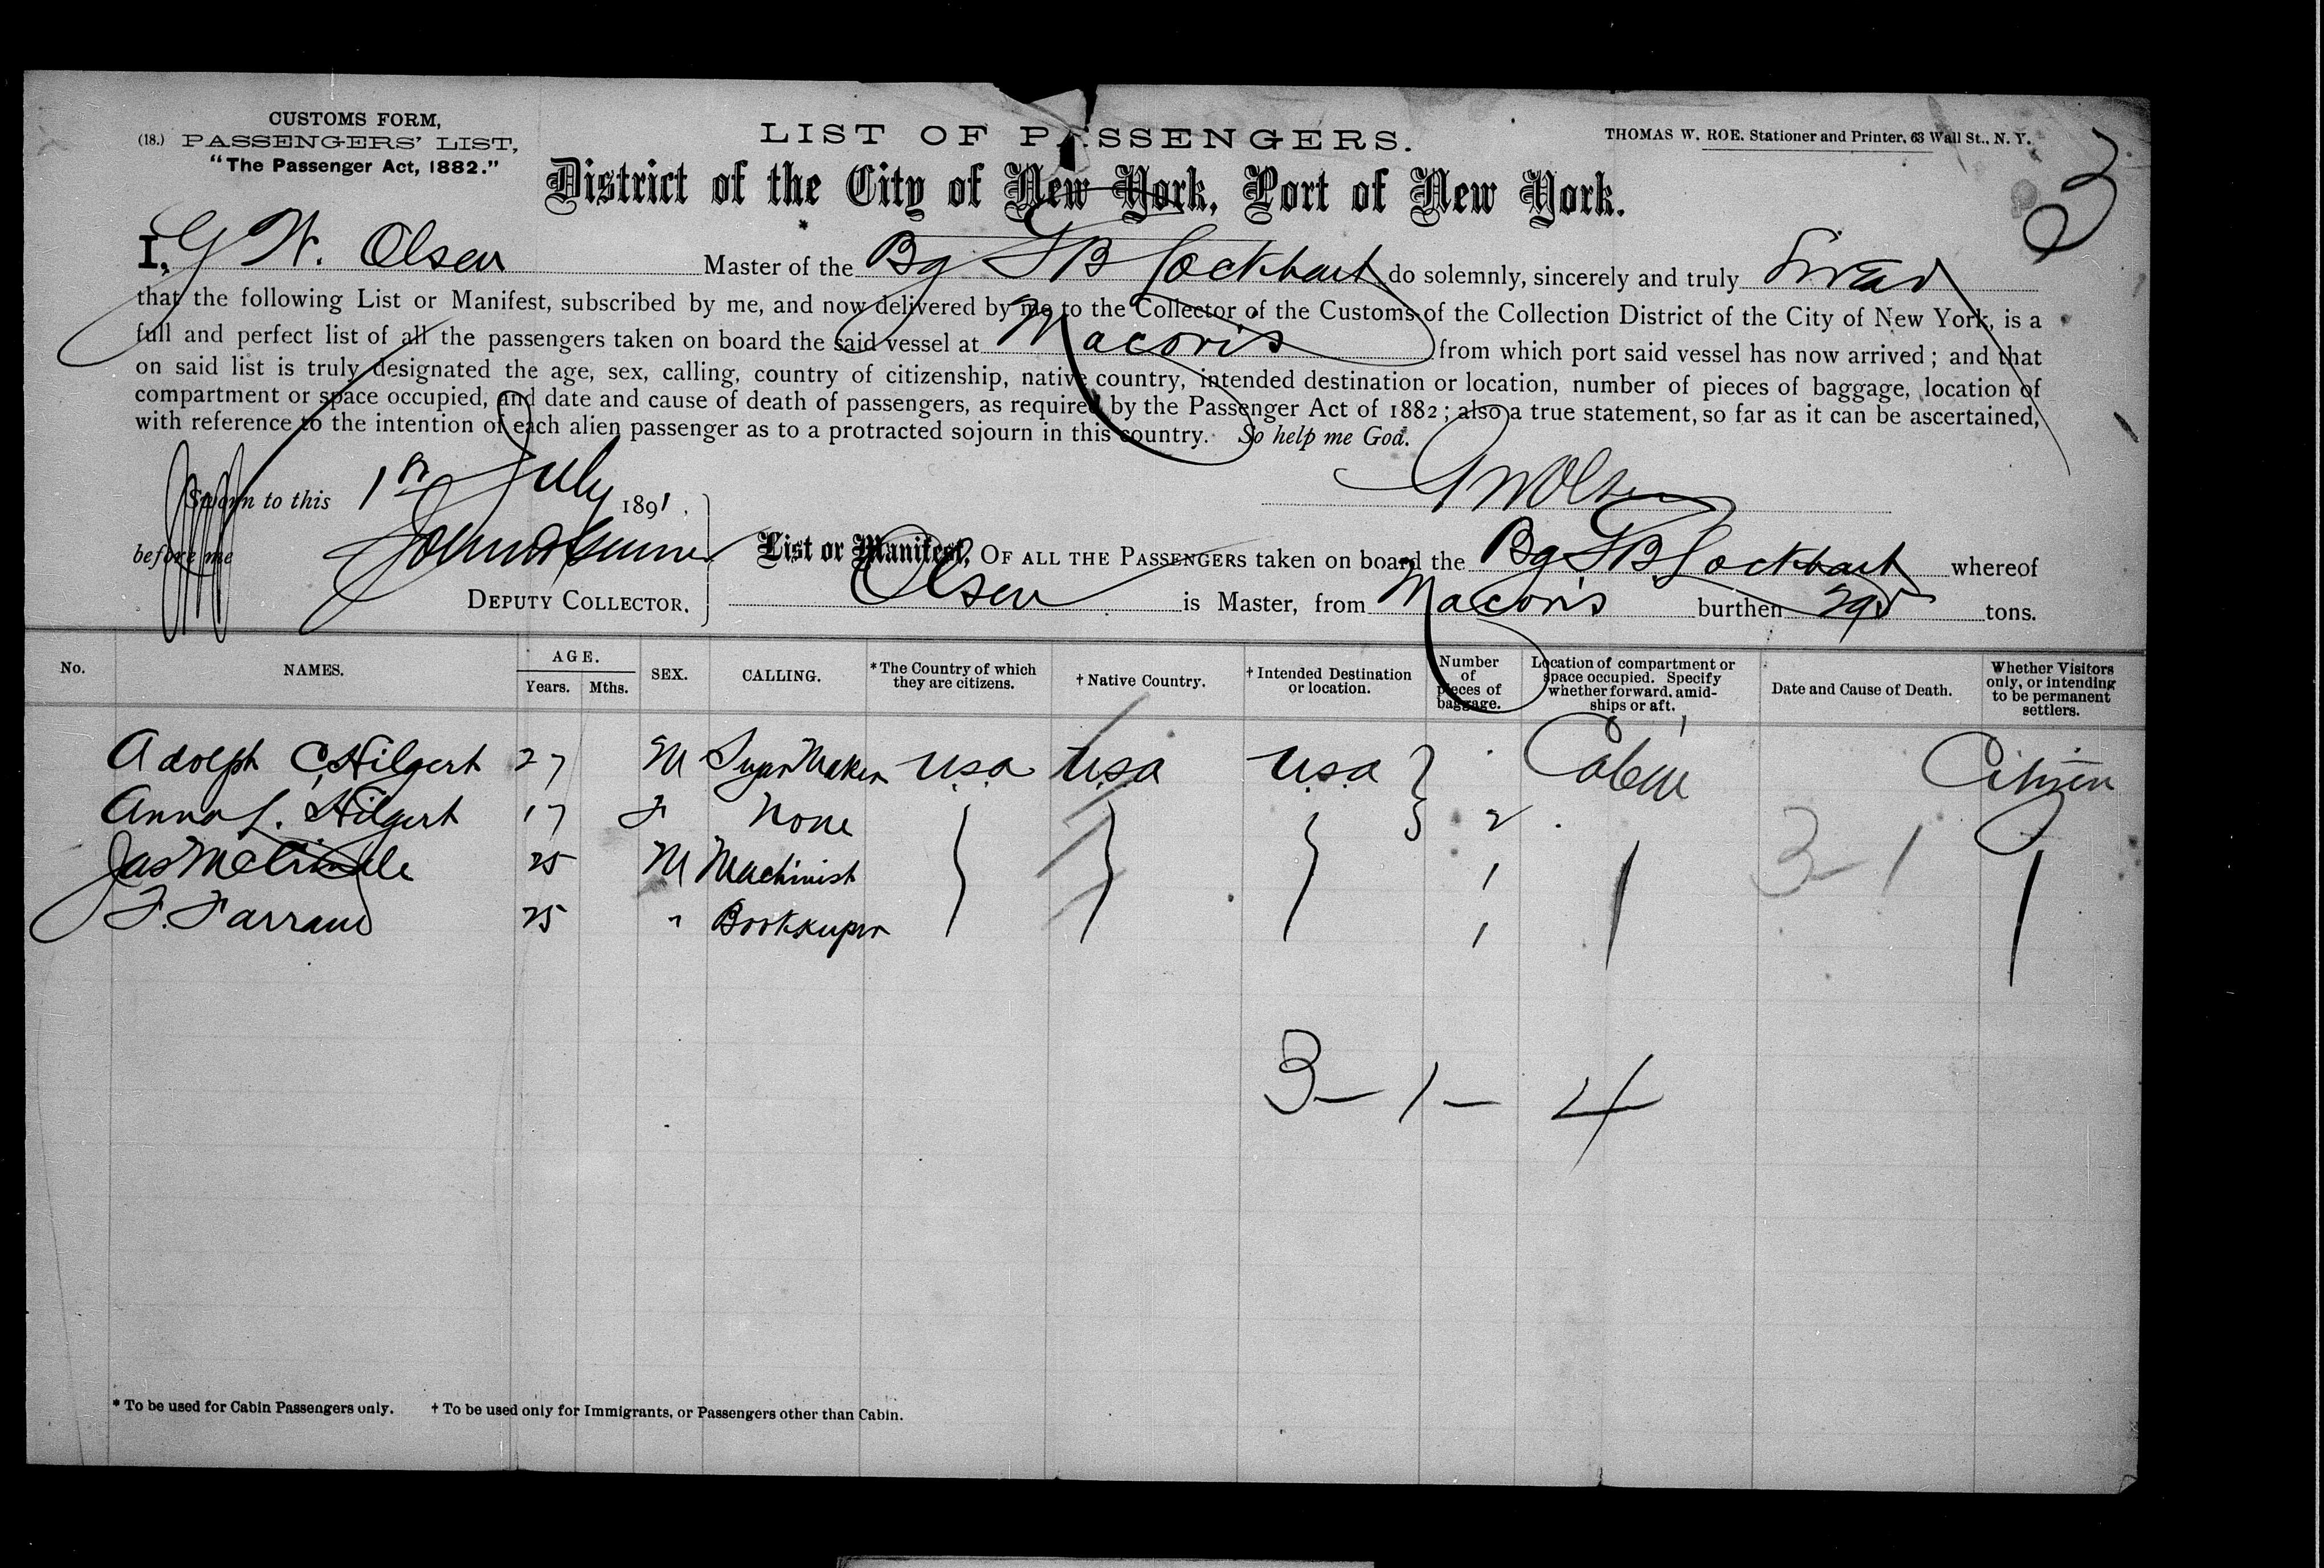 CUSTOMS FORM,
(18.) PASSENGERS' LIST,
"The Passenger Act, 1882."
LIST OF PASSENGERS.
THOMAS W. ROE. Stationer and Printer, 63 Wall St., N. Y.
3
District of the City of New York, Port of New York.
I, G W. Olsen Master of the Bg L B Lockhart do solemnly, sincerely and truly Swear
that the following List or Manifest, subscribed by me, and now delivered by me to the Collector of the Customs of the Collection District of the City of New York, is a
full and perfect list of all the passengers taken on board the said vessel at Macoris from which port said vessel has now arrived; and that
on said list is truly designated the age, sex, calling, country of citizenship, native country, intended destination or location, number of pieces of baggage, location of
compartment or space occupied, and date and cause of death of passengers, as required by the Passenger Act of 1882; also a true statement, so far as it can be ascertained,
with reference to the intention of each alien passenger as to a protracted sojourn in this country. So help me God.
Sworn to this 1st July 1891.
G W Olsen
before me
DEPUTY COLLECTOR.
List or Manifest, OF ALL THE PASSENGERS taken on board the Bg L B Lockhart whereof
Olsen is Master, from Macoris burthen tons.
No. NAMES. AGE. Years. Mths. SEX. CALLING. *The Country of which they are citizens. † Native Country. † Intended Destination or location. Number of pieces of baggage. Location of compartment or space occupied. Specify whether forward, amidships or aft. Date and Cause of Death. Whether Visitors only, or intending to be permanent settlers.
Adolph C. Hilgert 27 M Sugar Maker U.S.A U.S.A U.S.A Cabin Citizen
Anna L. Hilgert 17 F None 2
Jas 25 M Machinist 1 3-1
F. Farrand 25 " Bookkeeper 1
3-1-4
* To be used for Cabin Passengers only. † To be used only for Immigrants, or Passengers other than Cabin.